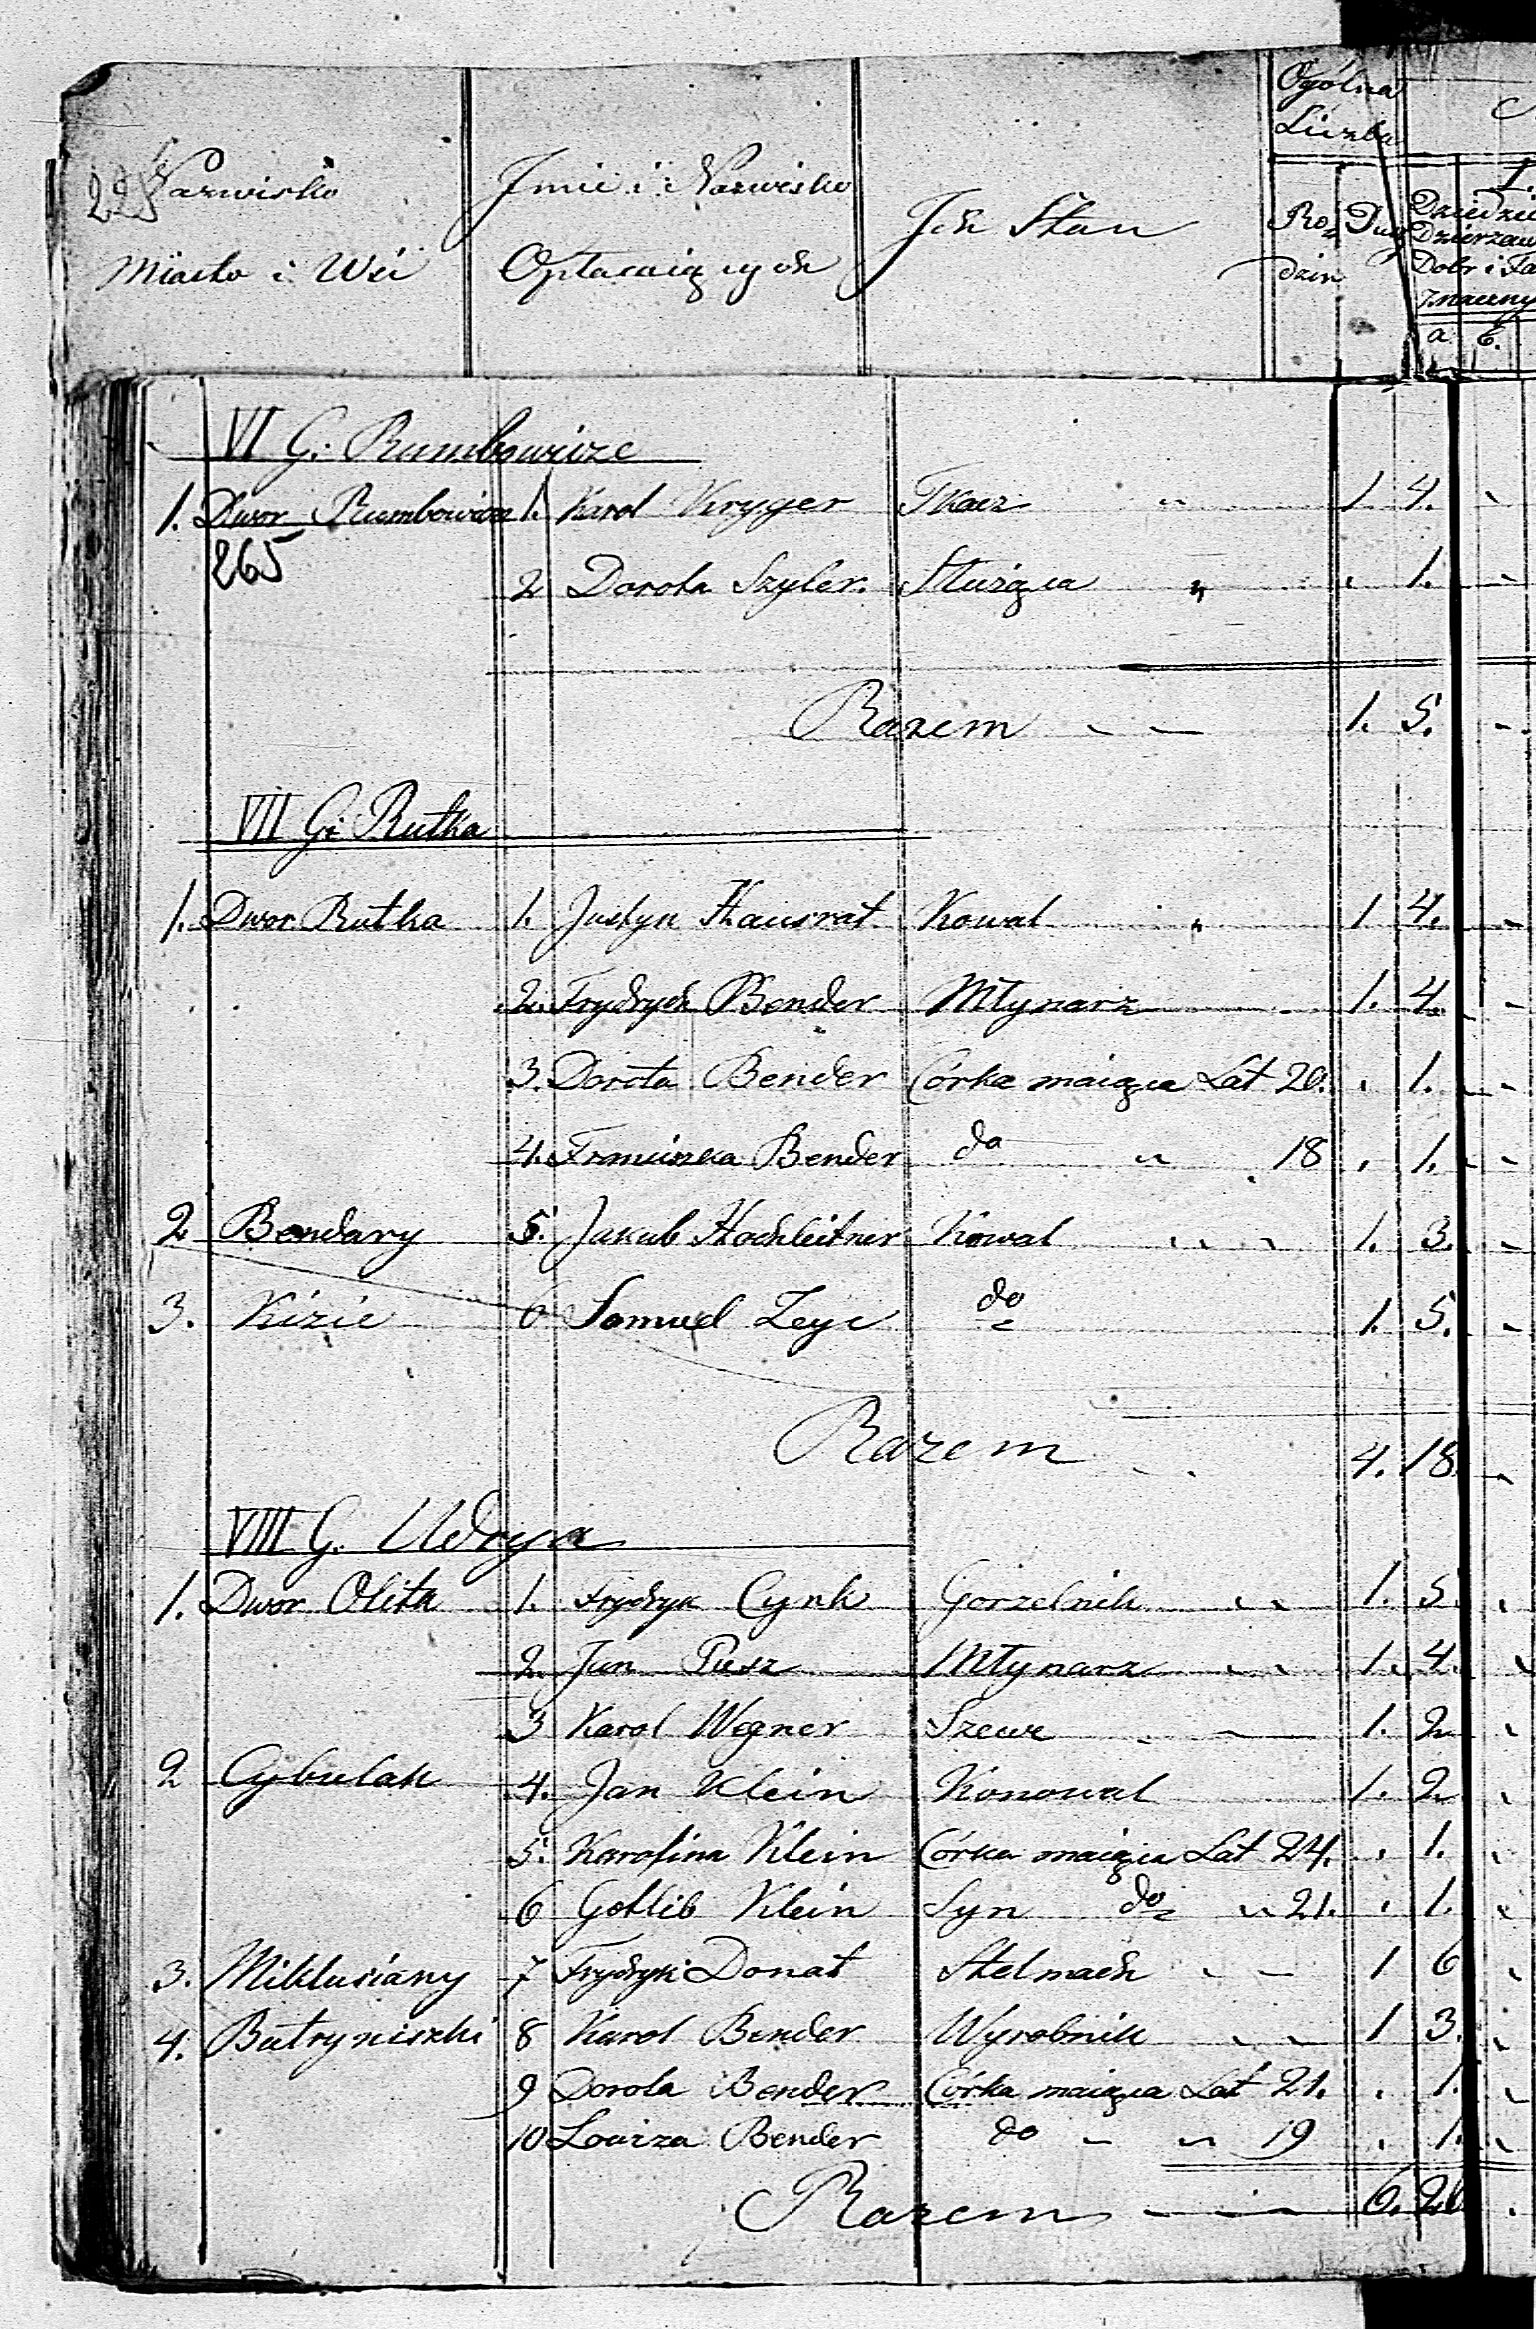 Nazwisko
Miasta i Wsi
225
Jmie i Nazwisko
Opłacaiących
Jch Stan
Ogólna
Liczba
Ro-
dzin
Dusz
I.
Dziedzic
Dzierzaw
Dobr i Fa
znaczny
a. b.
VI G. Rumbowicze
1. Dwor Rumbowicze 1. Karol Kryger Tkacz " 1. 4. -
265
2 Dorota Szyler. Służąca " . 1. -
Razem - - 1. 5. -
VII G: Rutka
1. Dwor Rutka 1. Justyn Hausrat Kowal " 1. 4. -
2. Frydrych Bender Młynarz 1. 4. -
3. Dorota Bender Córka maiąca Lat 20. . 1. -
4. Franciszka Bender do " 18 . 1. -
2 Bendary 5. Jakub Hochleitner Kowal " - 1. 3. -
3. Kizie 6 Samuel Zeyc do 1. 5. -
Razem 4. 18. -
VIII G. Udryia
1. Dwor Olita 1. Frydryk Cynk Gorzelnik - - 1. 5 -
2. Jan Pusz Młynarz - - 1. 4. -
3 Karol Wegner Szewc - 1. 2 -
2 Cybulak 4. Jan Klein Konował 1. 2 -
5. Karolina Klein Córka maiąca Lat 24. . 1. -
6 Gotlib Klein Syn do " 21. . 1. -
3. Miklusiany 7 Frydryk Donat Stelmach - - 1 6 -
4. Butryniszki 8 Karol Bender Wyrobnik - - 1 3. -
9 Dorota Bender Córka maiąca Lat 21. . 1. -
10 Lowiza Bender do - " 19 . 1. -
Razem - - 6. 26 -